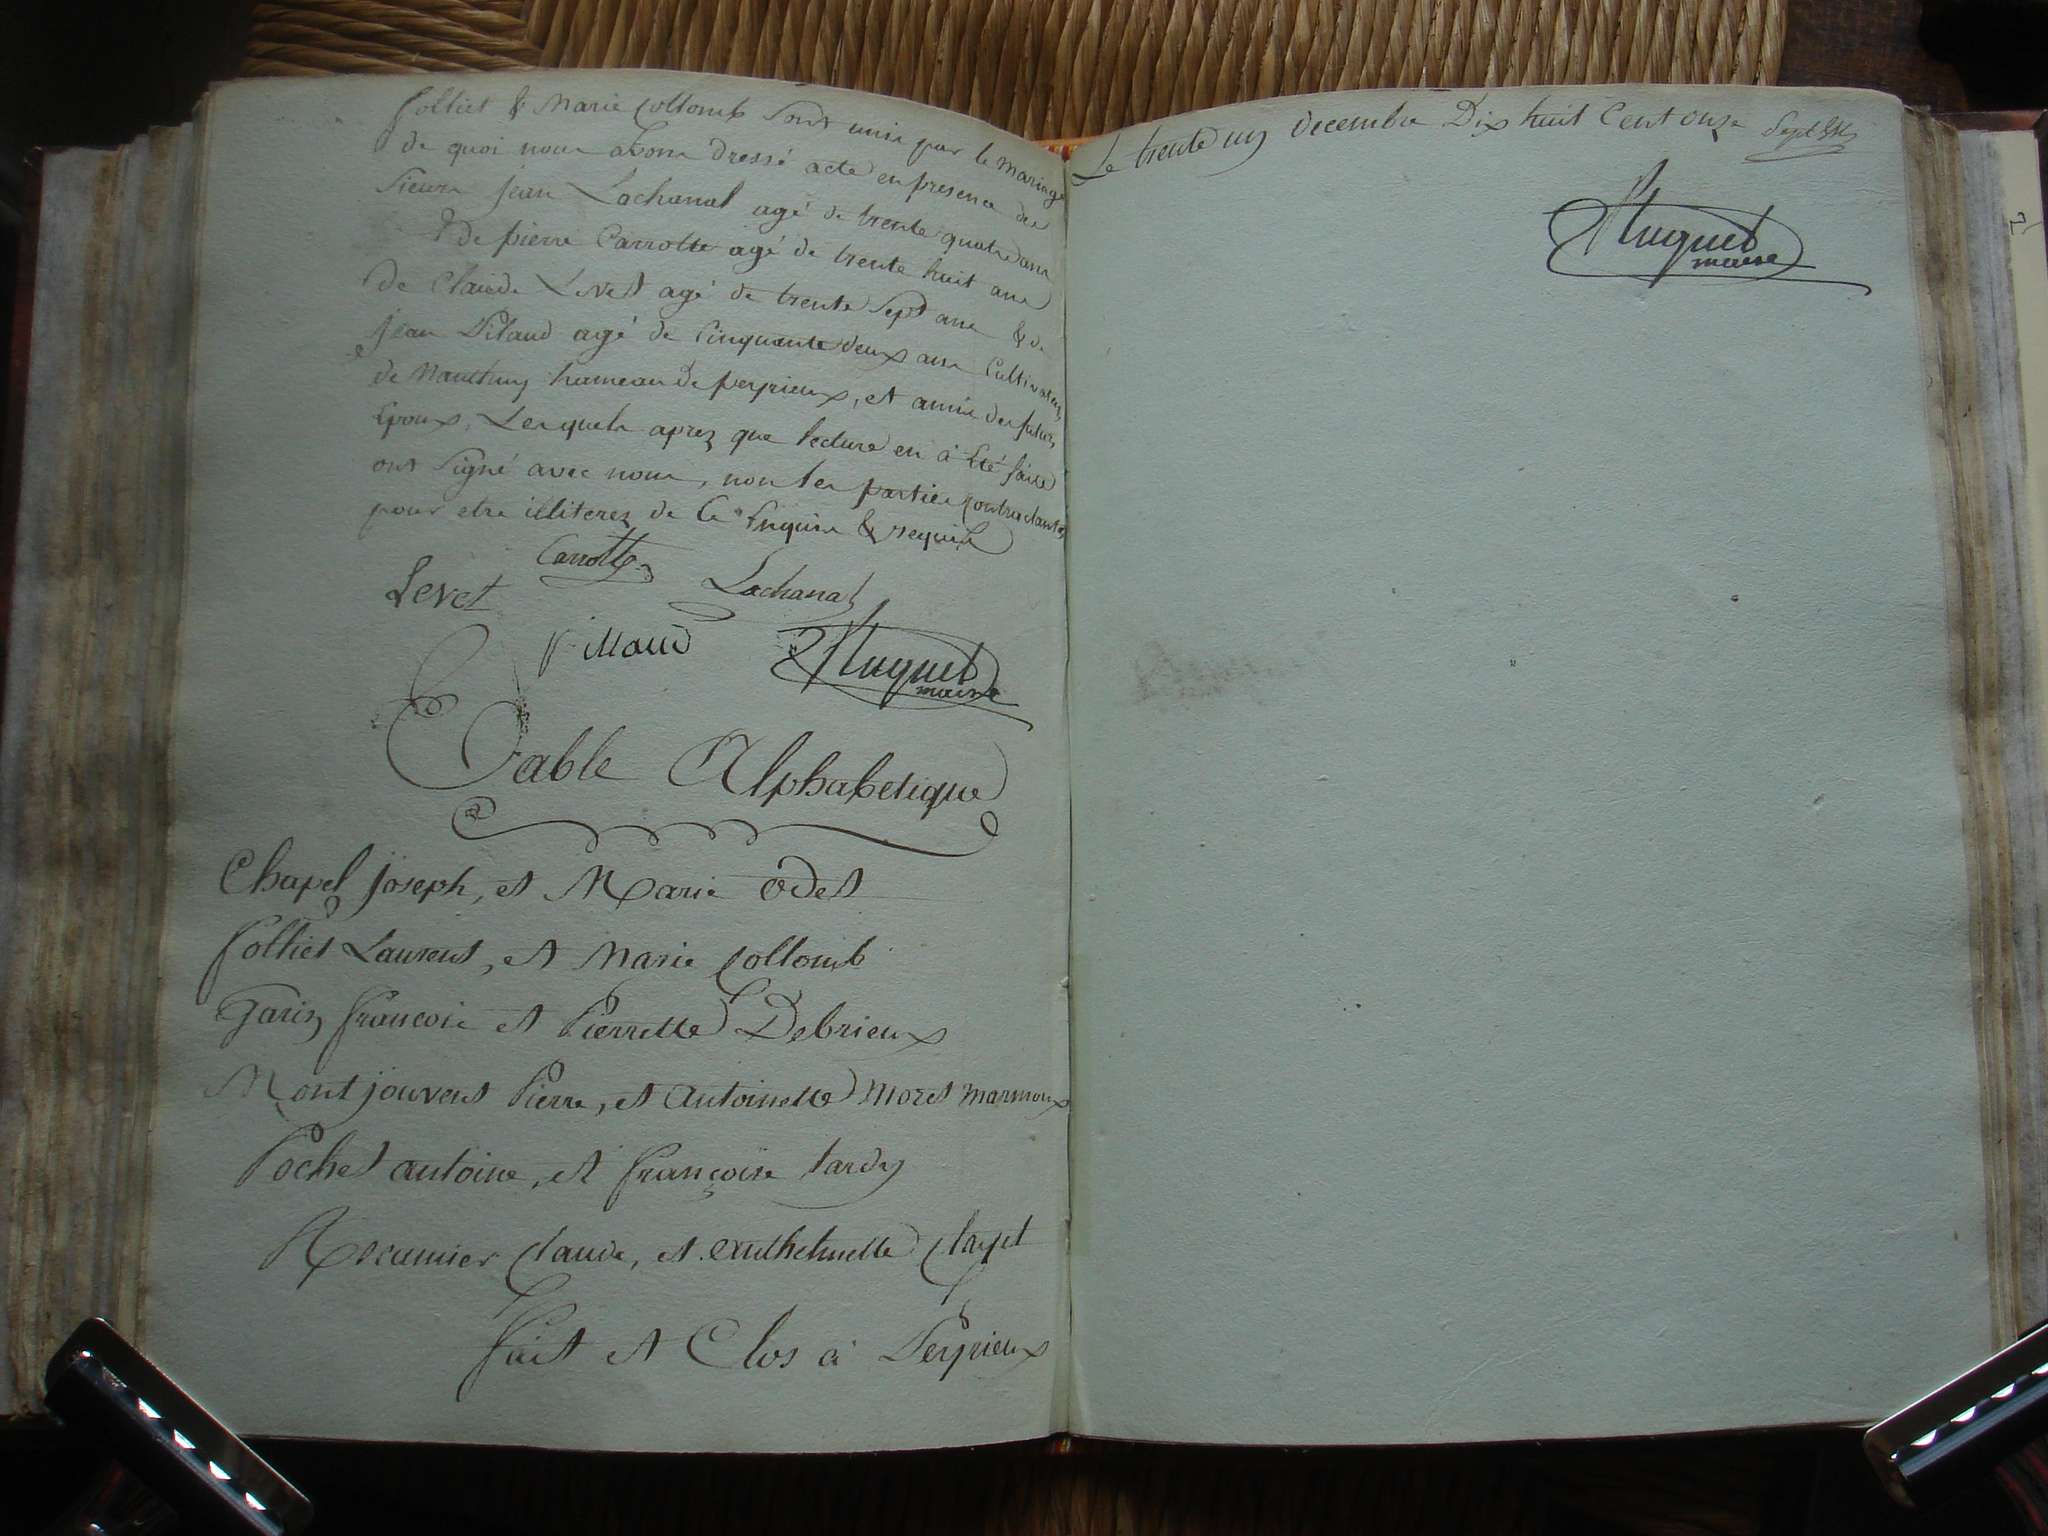 folliet & Marie Collomb Sont unis par le mariage
de quoi nous avons dressé acte en presence des
Sieurs jean Lachanal agé de trente quatre ans
& de pierre Carrotte agé de trente huit ans
de Claude Levet agé de trente Sept ans & de
jean Pilaud agé de Cinquante deux ans Cultivateurs
de Nanthuy hameau de peyrieux, et amis des futurs
Epoux, Lesquels aprez que lecture en à Eté faite
ont Signé avec nous, non les parties Contractantes
pour etre illiterez de Ce Enquis & requis
Carrotte
Levet Lachanal
Pillaud Huguet
maire
Table Alphabetique
Chapel Joseph, et Marie Odet
folliet Laurent, et Marie Collomb
Gariz françois et Pierrette Debrieux
Montjouvent Pierre, et Antoinette Moret Marmoux
Pochet antoine, et françoise tardy
Recamier Claude, et Anthelmette Clayet
fait et Clos à Peyrieux
Le trente un decembre Dix huit Cent Onze
Huguet
maire